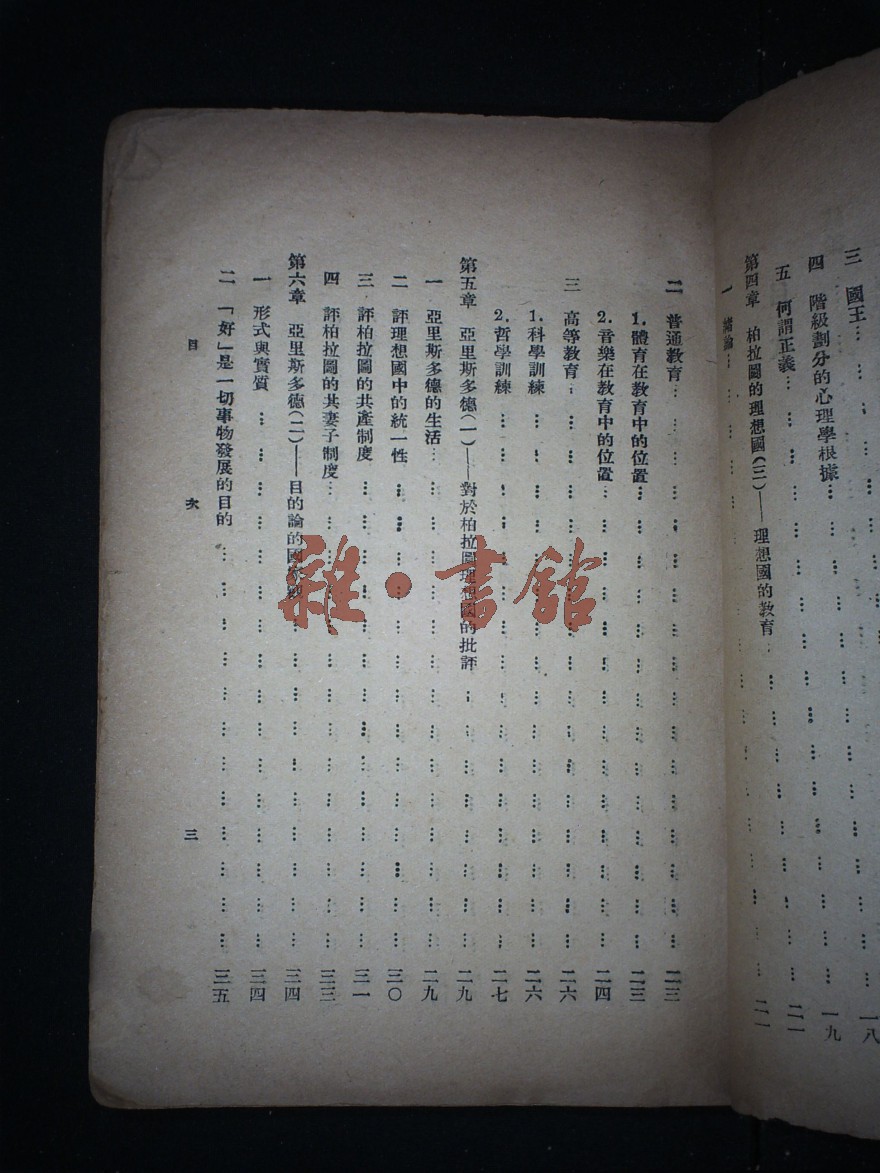 三　國王………一八
四　階級劃分的心理學根據………一九
五　何謂正義………二一
第四章　柏拉圖的理想國(三)——理想國的教育………二一
一　緒論………
二　普通教育………二三
1.體育在教育中的位置………二三
2.音樂在教育中的位置………二四
三　高等教育………二六
1.科學訓練………二六
2.哲學訓練………二七
第五章　亞里斯多德(一)——對於柏拉圖理想國的批評………二九
一　亞里斯多德的生活………二九
二　評理想國中的統一性………三〇
三　評柏拉圖的共產制度………三一
四　評柏拉圖的共妻子制度………三三
第六章　亞里斯多德(二)——目的論的國家觀………三四
一　形式與實質………三四
二　「好」是一切事物發展的目的………三五
目　次　三
雜·書館